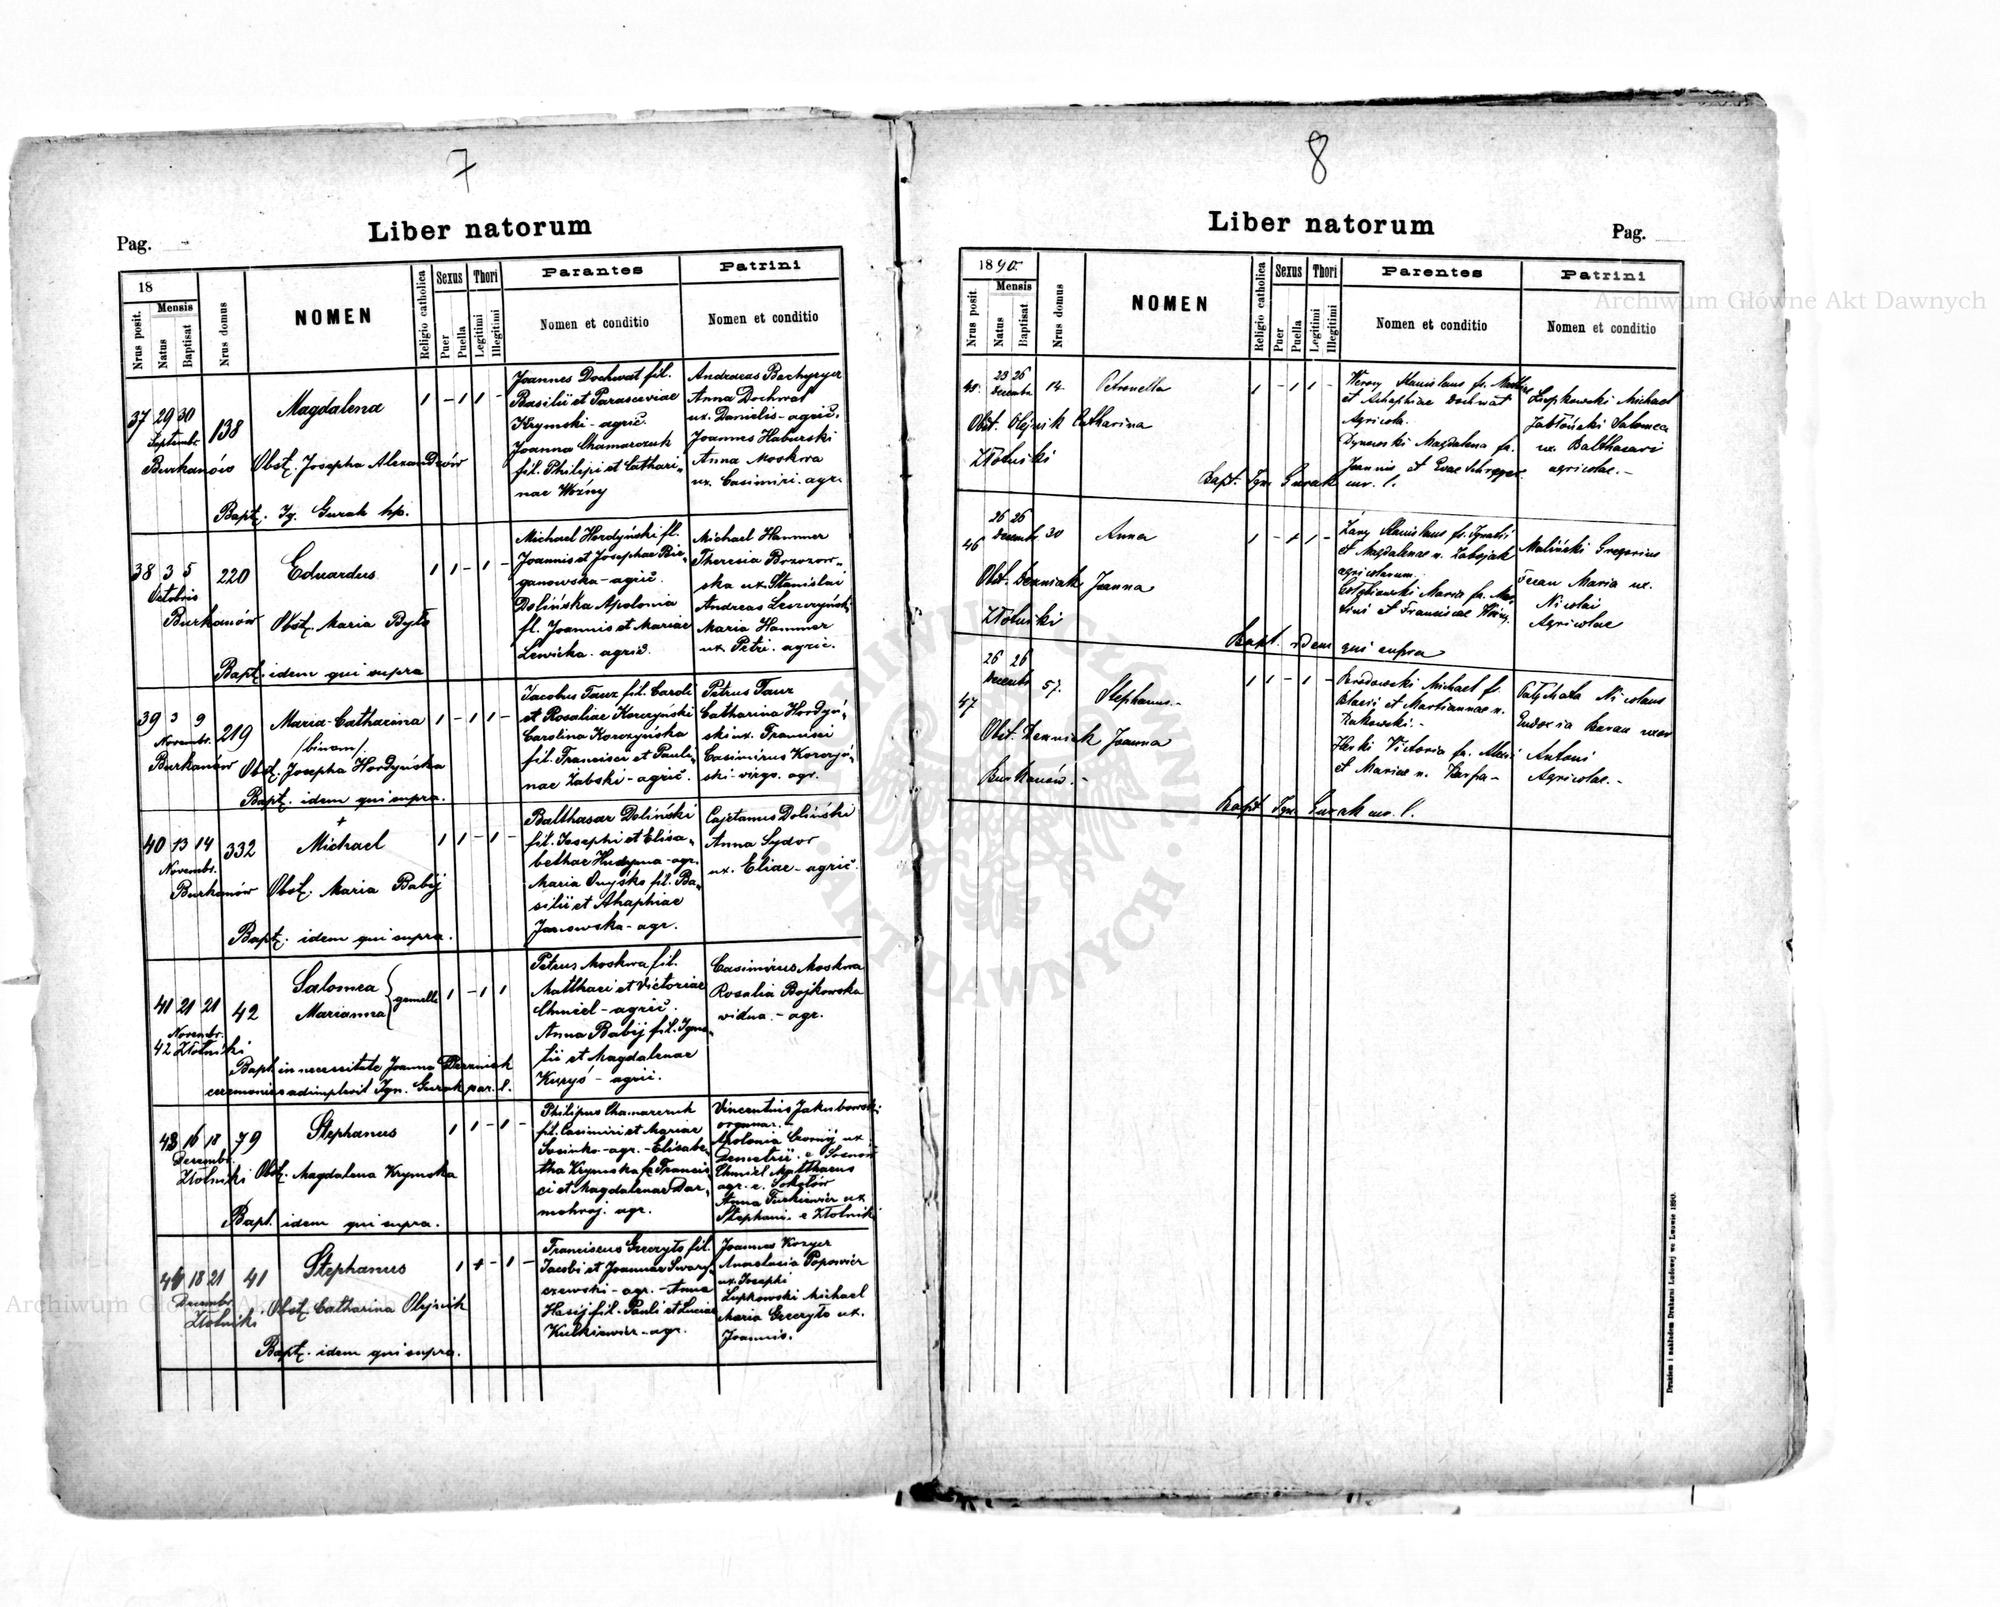 7
Liber natorum
Pag.
18
Mensis
Nrus posit.
Natus
Baptisat
Nrus domus
NOMEN
Religio catholica
Sexus
Puer
Puella
Thori
Legitimi
Illegitimi
Parantes
Nomen et conditio
Patrini
Nomen et conditio
37 29 30 138
Septembr.
Burkanów
Magdalena
Obst. Josepha Alexandrów
Bapt. Ig. Gurak
1 - 1 1 -
Joannes Dochwat fil.
Basilii et Parasceviae
Krymski - agric.
Joanna Chamarczuk
fil. Philipi et Cathari-
nae Woźny
Andreas
Anna Dochwat
ux. Danielis - agric.
Joannes Haburski
Anna Moskwa
ux. Casimiri. agr.
38 3 5 220
Octobris
Burkanów
Eduardus
Obst. Maria Byts
Bapt. idem qui supra
1 1 - 1 -
Michael Hordyński fl.
Joannis et Josephae
ganowska - agric.
Dolińska Apolonia
fl. Joannis et Mariae
Lewicka. agric.
Michael Hammer
Theresia Brzezow-
ska ux. Stanislai
Andreas
Maria Hammer
ux. Petri. agric.
39 3 9 219
Novembr.
Burkanów
Maria-Catharina
/binom/.
Obst. Josepha Hordyńska
Bapt. idem qui supra.
1 - 1 1 -
Jacobus Tauz fil. Caroli
et Rosaliae Korczyński
Carolina Korczyńska
fil. Francisci et Pauli-
nae Żabski - agric.
Petrus Tauz
Catharina Hordyń-
ski ux. Francisci
Casimirus Korczyń-
ski - virgo. agr.
40 13 14 332
Novembr.
Burkanów
Michael
Obst. Maria Babij
Bapt. idem qui supra.
1 1 - 1 -
Balthasar Doliński
fil. Josephi et Elisa-
bethae - agr.
Maria fil. Ba-
silii et Ahaphiae
Janowska - agr.
Cajetanus Doliński
Anna Sydor
ux. Eliae - agric.
41 21 21 42
Novembr.
42 Złotniki
Salomea
Marianna
gemelle
Bapt. in necessitate Joanna Derzniak
ceremonies adimplevit Ign. Gurak par. l.
1 - 1 1
Petrus Moskwa fil.
Matthaei et Victoriae
Chmiel - agric.
Anna Babij fil. Igna-
tii et Magdalenae
Kuryś - agric.
Casimirus Moskwa
Rosalia Bojkowska
vidua. - agr.
43 16 18 79
Decembr.
Złotniki
Stephanus
Obst. Magdalena Krymska
Bapt. idem qui supra.
1 1 - 1 -
Philipus Chamarczuk
fil. Casimiri et Mariae
Sosinko - agr. - Elisabe-
tha Krymska fl. Francis-
ci et Magdalenae Dar-
mohraj. agr.
Vincentius Jakubowski
organar. -
Apolonia Czornij ux.
Demetrii. e Sosnow
Chmiel Matthaeus
agr. e. Sokołów
Anna Turkiewicz ux.
Stephani. e Złotniki
44 18 21 41
Decembr.
Złotniki
Stephanus
Obst. Catharina Olejnik
Bapt. idem qui supra.
1 1 - 1 -
Franciscus Greczyło fil.
Jacobi et Joannae Swary-
czewski - agr. - Anna
Hasij fil. Pauli et Luciae
Kulkiewicz - agr.
Joannes Kozyer
Anastasia Popowicz
ux. Josephi
Lupkowski Michael
Maria Greczyło ux.
Joannis.
8
Liber natorum
Pag.
1890.
Mensis
Nrus posit.
Natus
Baptisat
Nrus domus
NOMEN
Religio catholica
Sexus
Puer
Puella
Thori
Legitimi
Illegitimi
Parentes
Nomen et conditio
Patrini
Nomen et conditio
45. 23 26 14.
Decembr
Petronella
Obst. Olejnik Catharina
Złotniki
Bapt. Ign. Gurak cur. l.
1 - 1 1 -
Stanislaus fr. Mathiae
et Ahaphiae Dochwat
Agricola.
Magdalena fr.
Joannis et Evae
Lupkowski Michael
Jabłoński Salomea
ux. Balthasari
agricolae. -
46 26 26 30
Decembr
Anna
Obst. Derzniak Joanna
Złotniki
Bapt. idem qui supra
1 - 1 1 -
Żany Stanislaus fr. Ignatii
et Magdalenae n. Zabojak
agricolarum.
Maria fr. Mar-
tini et Franciscae
Maliński Gregorius
Maria ux.
Nicolai
Agricolae
47 26 26 57.
Decembr
Stephanus. -
Obst. Derzniak Joanna
Burkanów. -
Bapt Ign. Gurak cur. l.
1 1 - 1 -
Brodowski Michael f.
Blasii et Mariannae n.
Żakowski. -
Victoria fr. Alexii
et Mariae n. Karfa -
Nicolaus
Eudoxia Baran uxor
Antoni
Agricolae. -
Drukiem i nakładem Drukarni Ludowej we Lwowie 1890.
Archiwum Główne Akt Dawnych
Archiwum Główne Akt Dawnych
ARCHIWUM GŁÓWNE · AKT DAWNYCH ·